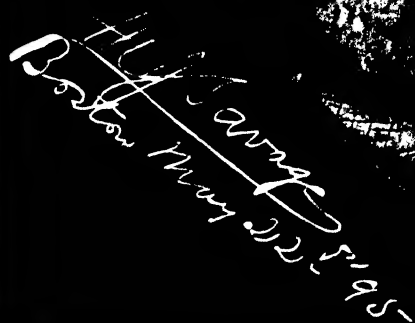 H G Savage
Boston May 22. '95